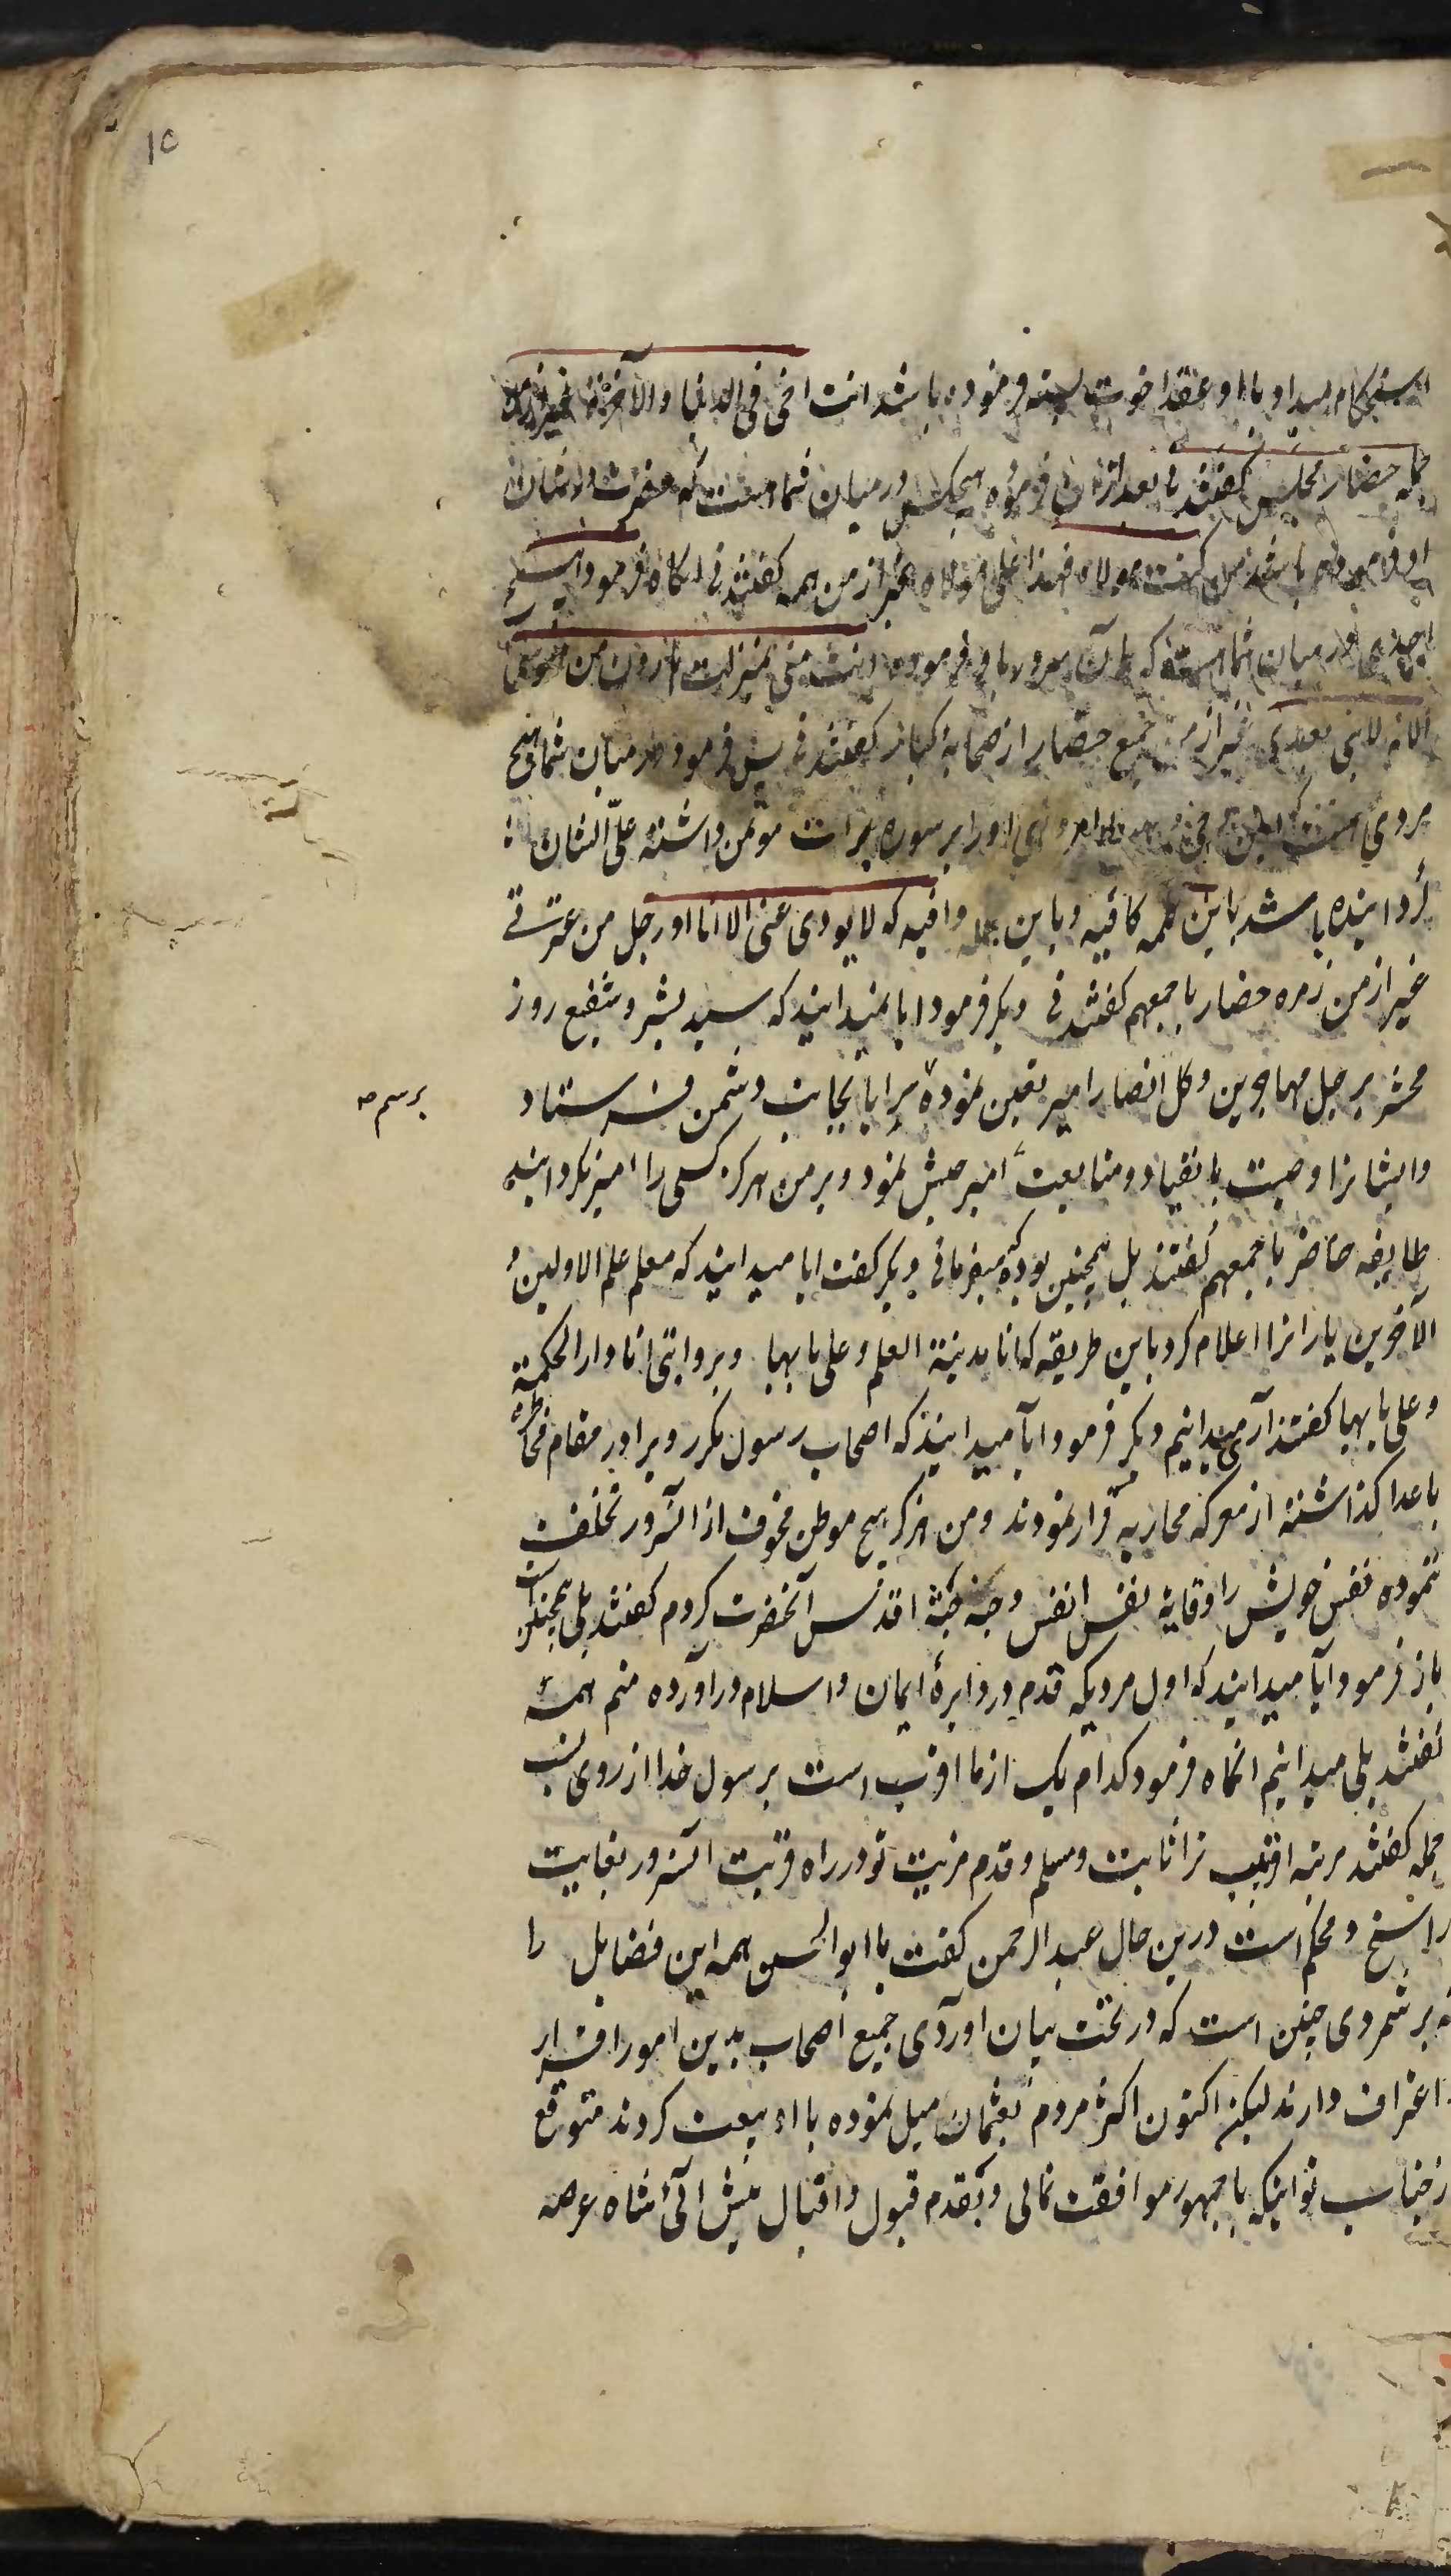 ۱۵
استحکام میداد باا و عقد اخوت بسته فرموده باشد انت اخی فی الدنیا والآخرة غیر از من
جمله حضار مجلس گفتند نی بعد ازان فرموده هیچکس در میان شما هست که حضرت در شان
او فرموده باشد من کنت مولاه فهذا علی مولاه غیر از من همه گفتند نی انکاه فرمود ایا
احدی در میان شما هست که آن سرور باو فرموده انت منی بمنزلت هارون من موسی
الا انه لا نبی بعدی غیر از من جمیع حضار از صحابهٔ کبار گفتند نی پس فرمود در میان شما هیچ
مردی هست که اورا بر سوره برات موتمن داشته علی الشان
گردانیده باشد باین کلمه کافیه و باین جمله وافیه که لا یودی عنی الا انا او رجل من عترتی
غیر از من زمره حضار باجمعهم گفتند نی دیگر فرمود ایا نمیدانید که سید بشر و شفیع روز
محشر بر جل مهاجرین و کل انصار امیر تعیین نموده سرایا بجانب دشمن فرستاد
برسم
وایشانرا وصیت بانقیاد و متابعت امیر جیش نمود و بر من هرگز کسی را امیر نگردانید
طایفه حاضر باجمعهم گفتند بلی همچنین بوده که میفرمائی دیگر گفت ایا میدانید که معلم علم الاولین و
الآخرین یارانرا اعلام کرد باین طریقه که انا مدینة العلم و علی بابها و بروایتی انا دار الحکمة
و علی بابها گفتند آری میدانیم دیگر فرمود ایا میدانید که اصحاب رسول مکرر ویرا در مقام مخاطره
باعدا گذاشته از معرکه محاربه فرار نمودند و من هرگز هیچ موطن مخوف از آنسرور تخلف
ننموده نفس خویش را وقایهٔ نفس انفس و جنه جثهٔ اقدس آنحضرت کردم گفتند بلی همچنین است
باز فرمود آیا میدانید که اول مردیکه قدم در دایرهٔ ایمان و اسلام در آورده منم همه
گفتند بلی میدانیم انگاه فرمود کدام یک از ما اقرب است برسول خدا از روی نسب
جمله گفتند مرتبه اقربیت ترا ثابت و مسلم و قدم مزیت تو در راه قربت آنسرور بغایت
راسخ و محکم است درین حال عبد الرحمن گفت یا ابوالحسن همه این فضایل را
که بر شمردی چنین است که در تحت بیان اوردی جمیع اصحاب بدین امور اقرار
و اعتراف دارند لیکن اکنون اکثر مردم بعثمان میل نموده با او بیعت کردند متوقع
از جناب تو اینکه با جمهور موافقت نمائی و بقدم قبول و اقبال پیش آئی شاه عرصه